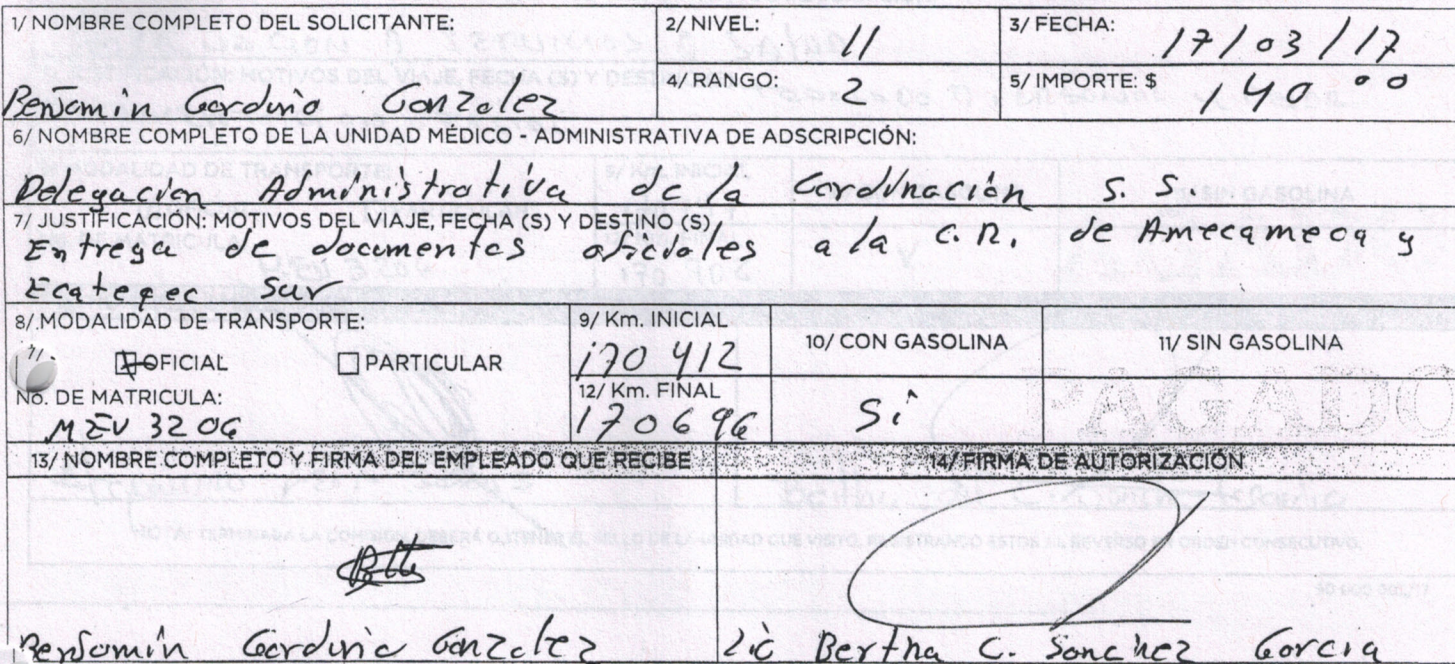 1/ NOMBRE COMPLETO DEL SOLICITANTE:
Benjamin Garduño Gonzalez
2/ NIVEL: 11
3/ FECHA: 17/03/17
4/ RANGO: 2
5/ IMPORTE: $ 40 00
6/ NOMBRE COMPLETO DE LA UNIDAD MÉDICO - ADMINISTRATIVA DE ADSCRIPCIÓN:
Delegacion Administrativa de la Cordinación S. S.
7/ JUSTIFICACIÓN: MOTIVOS DEL VIAJE, FECHA (S) Y DESTINO (S)
Entrega de documentos oficiales a la C.R. de Amecameca y
Ecatepec Sur
8/ MODALIDAD DE TRANSPORTE:
OFICIAL PARTICULAR
No. DE MATRICULA:
MEV 3206
9/ Km. INICIAL
170 412
12/ Km. FINAL
170696
10/ CON GASOLINA
Si
11/ SIN GASOLINA
PAGADO
13/ NOMBRE COMPLETO Y FIRMA DEL EMPLEADO QUE RECIBE
14/ FIRMA DE AUTORIZACIÓN
Benjamin Garduño Gonzalez
Lic Bertha C. Sanchez Garcia